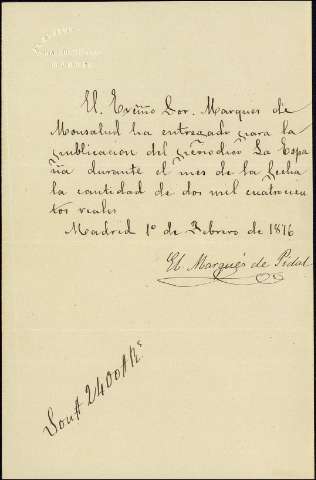 El Exmo Sor. Marques de
Monsalud ha entregado para la
publicacion del periodico La Espa
ña durante el mes de la fecha
la cantidad de dos mil cuatrocien
tos reales
Madrid 1º de Febrero de 1876
El Marqués de Pidal
Son # 2400 # Rs